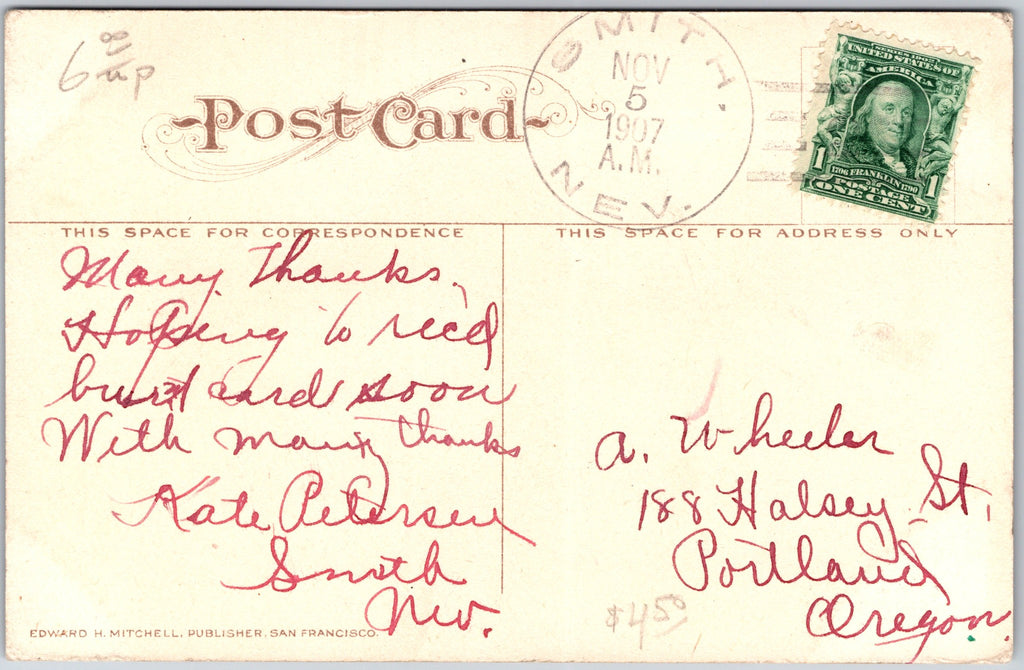 6
Post Card
SMITH,
NOV
5
1907
A.M.
NEV.
SERIES 1902
UNITED STATES OF
AMERICA
1 1
1706 FRANKLIN 1790
POSTAGE
ONE CENT
THIS SPACE FOR CORRESPONDENCE
Many Thanks,
Hopeing to recd
burnt card soon
With many thanks
Kate Petersen
Smith
Nev.
THIS SPACE FOR ADDRESS ONLY
A. Wheeler
188 Halsey St,
Portland
Oregon.
$4.50
EDWARD H. MITCHELL, PUBLISHER, SAN FRANCISCO.